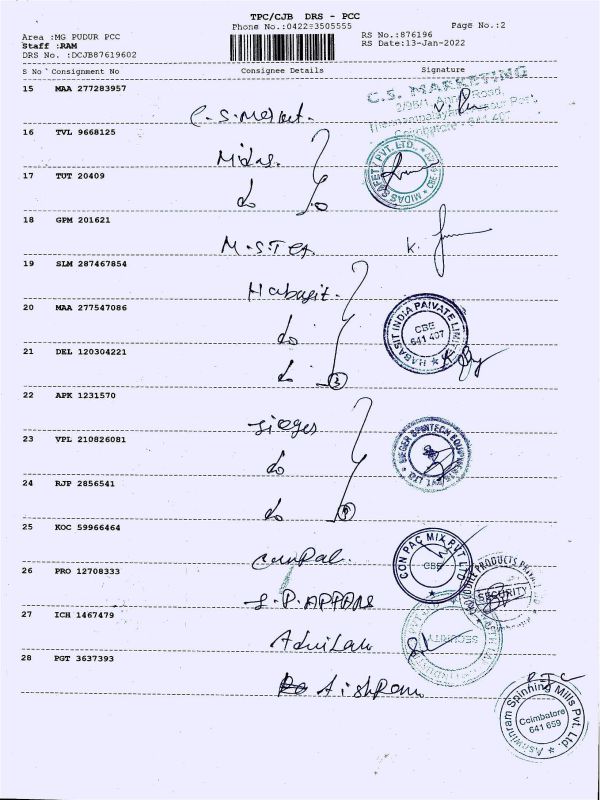 TPC/CJB DRS - PCC
Phone No.:0422-3505555
Page No.:2
Area :MG PUDUR PCC
RS No.:876196
Staff :RAM
RS Date:13-Jan-2022
DRS No. :DCJB87619602
S No Consignment No Consignee Details Signature
15 MAA 277283957
C.S. MARKETING
Coimbatore - 641 407
C.S.Market.
16 TVL 9668125
Midas.
MIDAS SAFETY PVT. LTD.
17 TUT 20409
do
18 GPM 201621
K.
19 SLM 287467854
Habasit.
20 MAA 277547086
do
HABASIT INDIA PAIVATE LIMITED
CBE
641 407
21 DEL 120304221
do 3
22 APK 1231570
Sieger
23 VPL 210826081
do
SIEGER SPINTECH EQUIPMENTS PVT LTD
24 RJP 2856541
do
25 KOC 59966464
Conpac.
CON PAC MIX PVT LTD
CBE
26 PRO 12708333
SECURITY
27 ICH 1467479
SECURITY
28 PGT 3637393
Aishram
Aishwinram Spinning Mills Pvt. Ltd.
Coimbatore
641 659